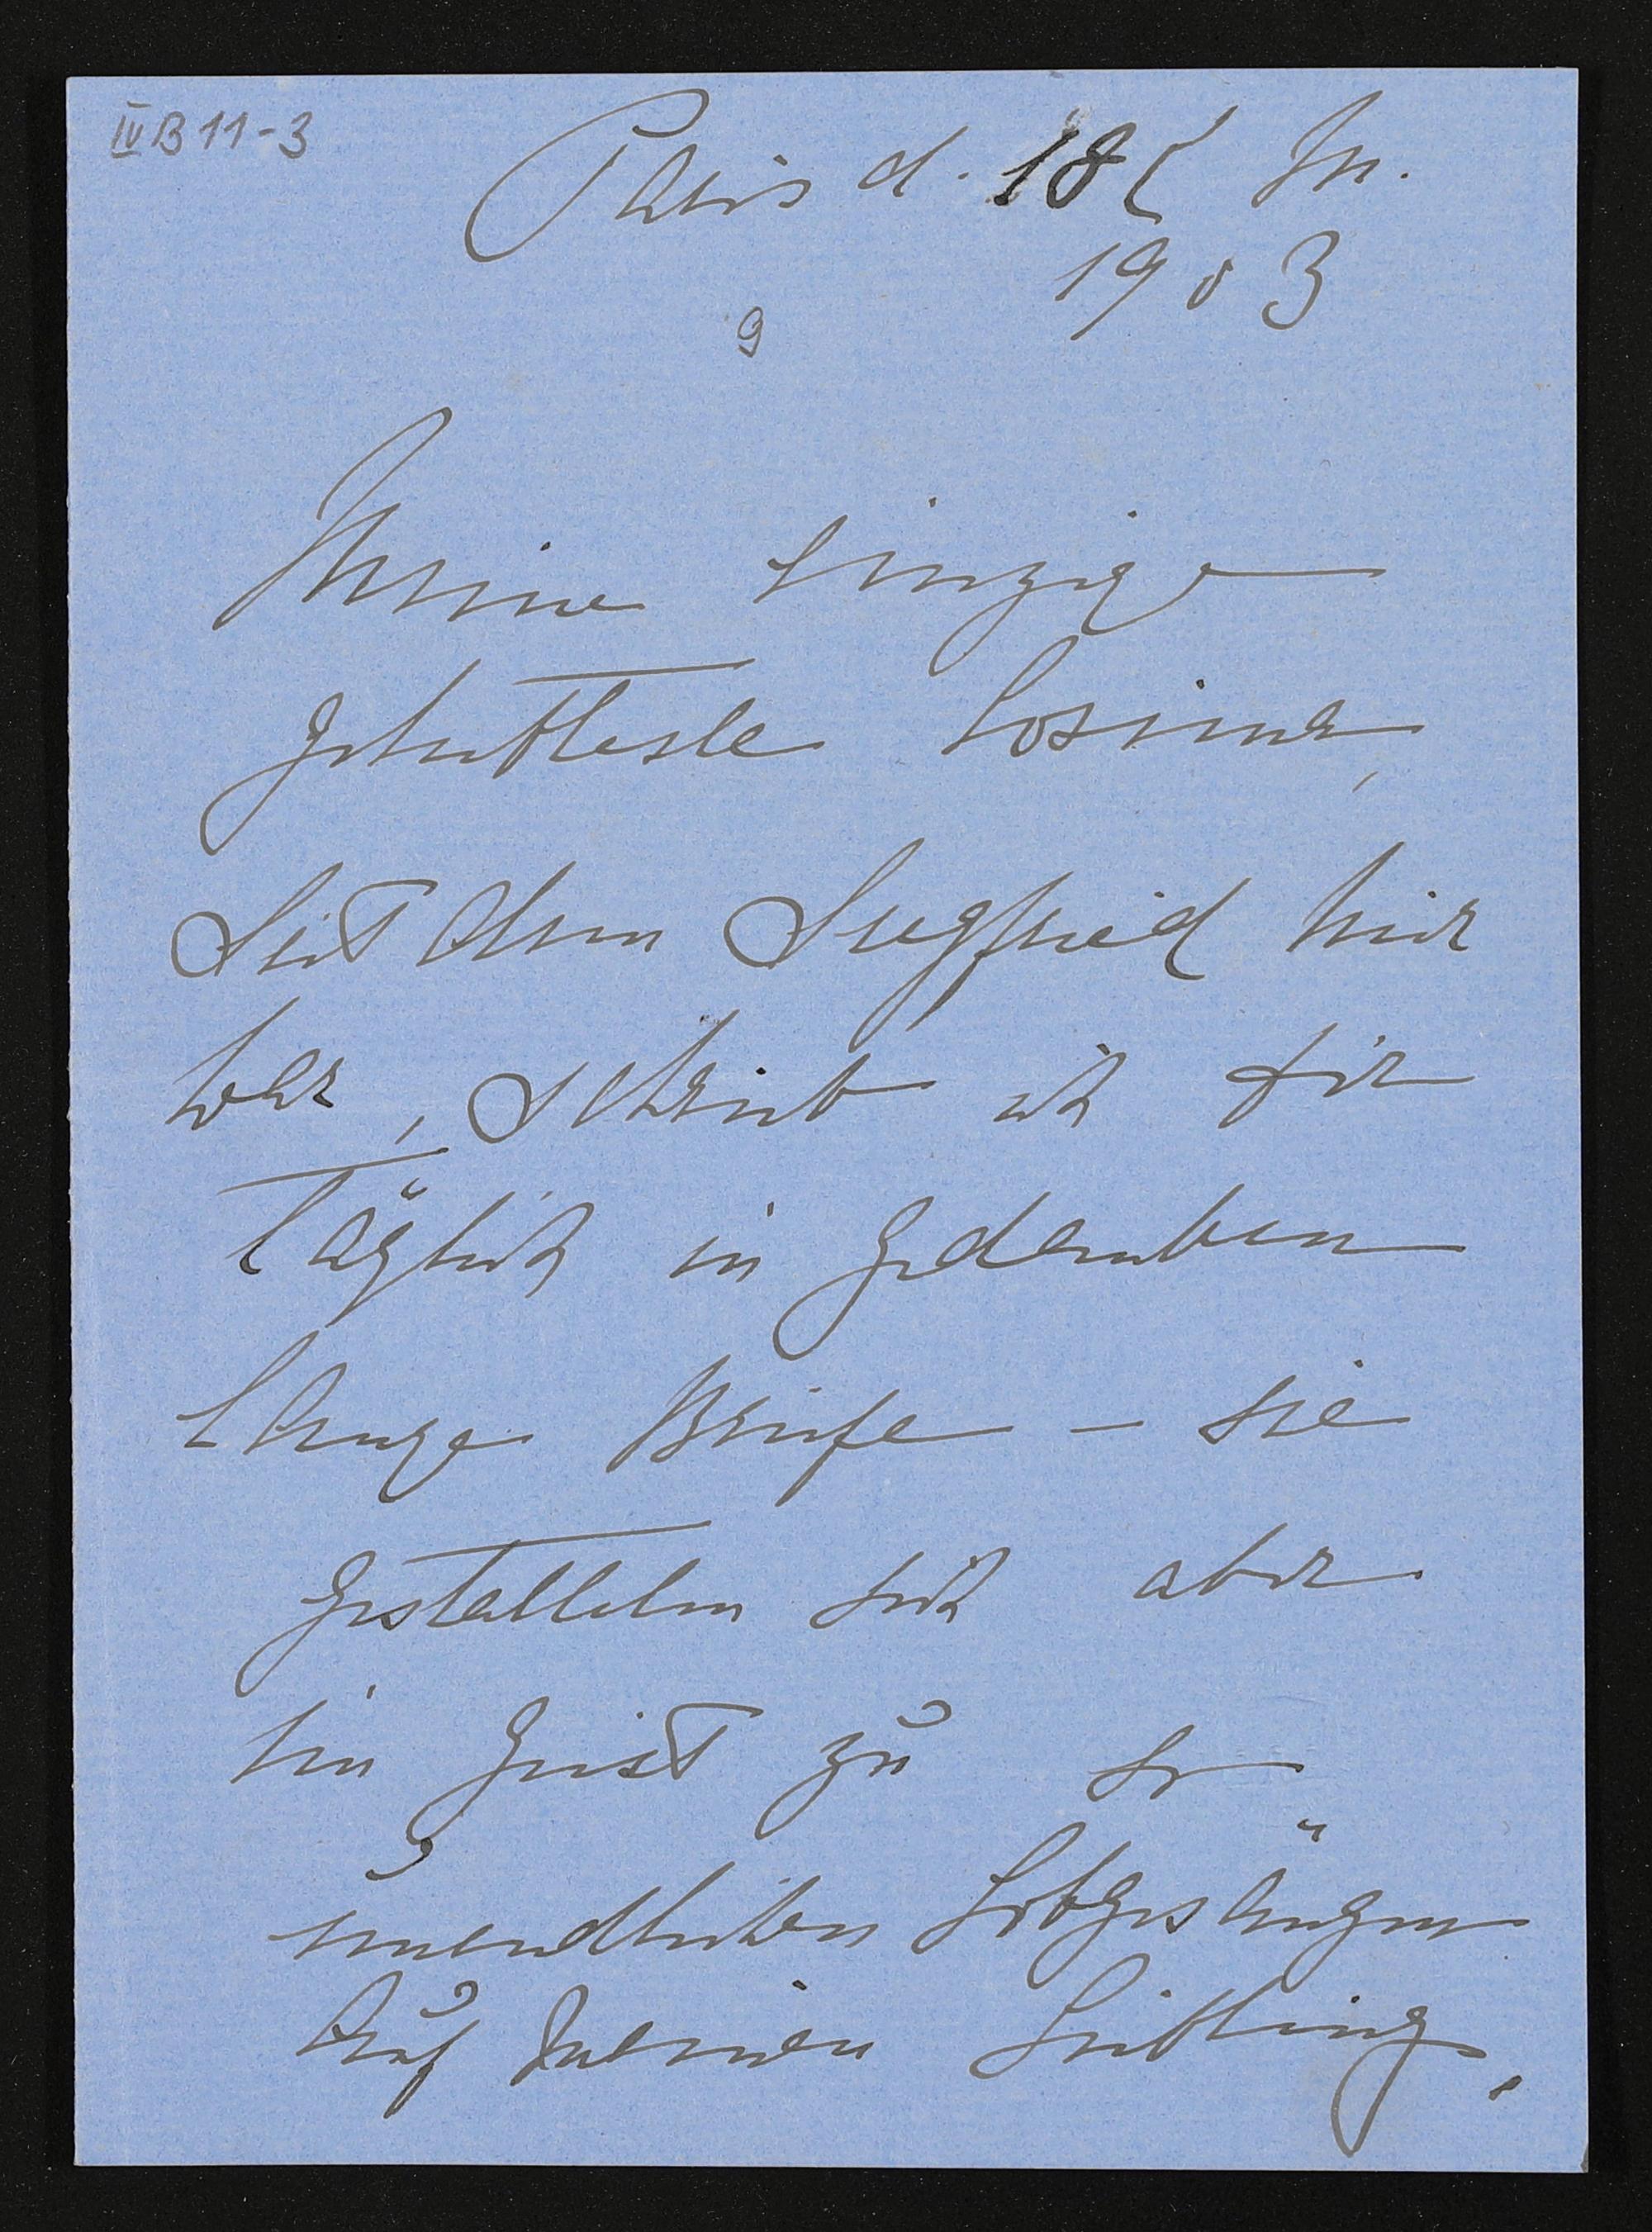 IV B 11-3
Paris d. 18t
1903
9
Meine einzige
geliebteste Cosima,
Seitdem Siegfried hier
war, schrieb ich dir
täglich in Gedanken
lange Briefe – sie
gestalteten sich aber
im Geist zu so
unendlichen Lobgesängen
auf meinen Liebling,